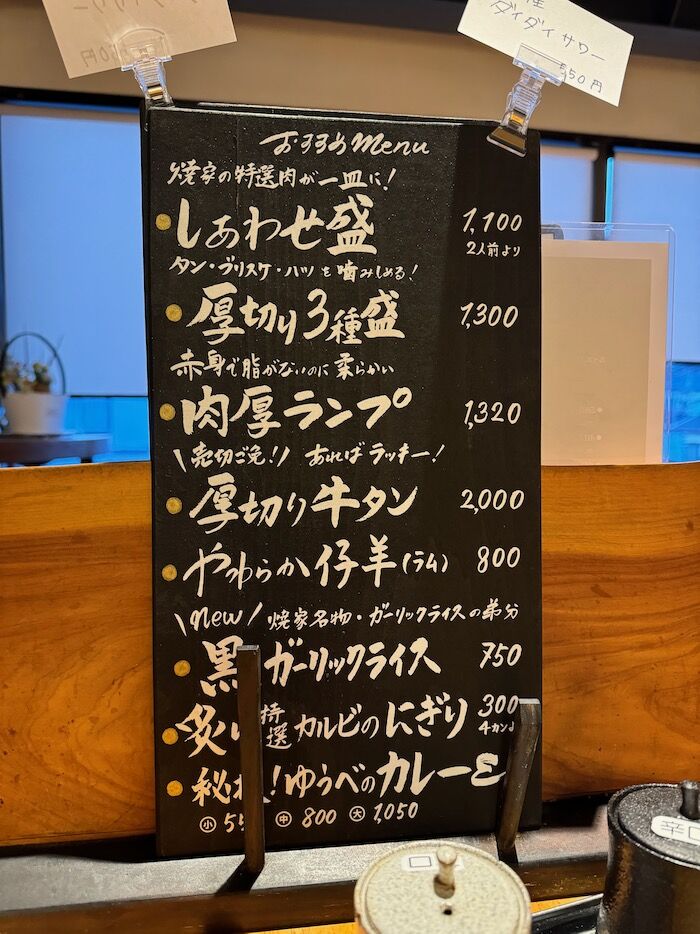 ダイダイサワー
550円
おすすめmenu
焼家の特選肉が一皿に!
しあわせ盛 1,100
2人前より
タン・ブリスケ・ハツを噛みしめる!
厚切り3種盛 1,300
赤身で脂がないのに柔らかい
肉厚ランプ 1,320
\売切ご免!/ あればラッキー!
厚切り牛タン 2,000
やわらか仔羊(ラム) 800
\new/ 焼家名物・ガーリックライスの弟分
黒 ガーリックライス 750
炙り 特選 カルビのにぎり 300
4カン♪
秘 !ゆうべのカレー
小 5 中 800 大 1,050
辛口